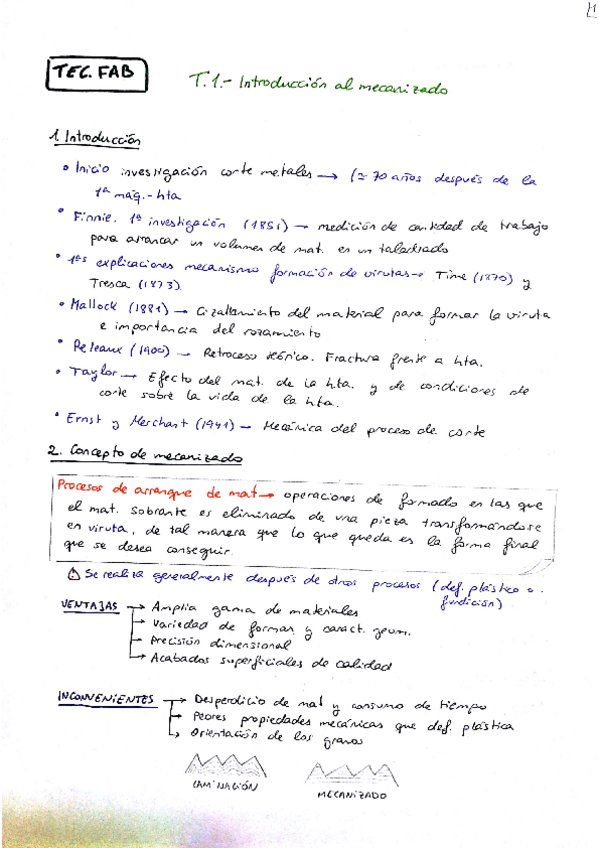 TEC. FAB
T.1.- Introducción al mecanizado
1. Introducción
• Inicio investigación corte metales → (≃ 70 años después de la
1ª máq.-hta
• Finnie. 1ª investigación (1851) → medición de cantidad de trabajo
para arrancar un volumen de mat. en un taladrado
• 1ªs explicaciones mecanismo formación de virutas → Time (1870) y
Tresca (1873)
• Mallock (1881) → Cizallamiento del material para formar la viruta
e importancia del rozamiento
• Releaux (1900) → Retroceso teórico. Fractura frente a hta.
• Taylor → Efecto del mat. de la hta. y de condiciones de
corte sobre la vida de la hta.
• Ernst y Merchant (1941) → Mecánica del proceso de corte
2. Concepto de mecanizado
Procesos de arranque de mat → operaciones de formado en las que
el mat. sobrante es eliminado de una pieza transformándose
en viruta, de tal manera que lo que queda es la forma final
que se desea conseguir.
Se realiza generalmente después de otros procesos (def. plástica o
fundición)
VENTAJAS → Amplia gama de materiales
→ Variedad de formas y caract. geom.
→ Precisión dimensional
→ Acabados superficiales de calidad
INCONVENIENTES → Desperdicio de mat y consumo de tiempo
→ Peores propiedades mecánicas que def. plástica
→ Orientación de los granos
LAMINACIÓN
MECANIZADO